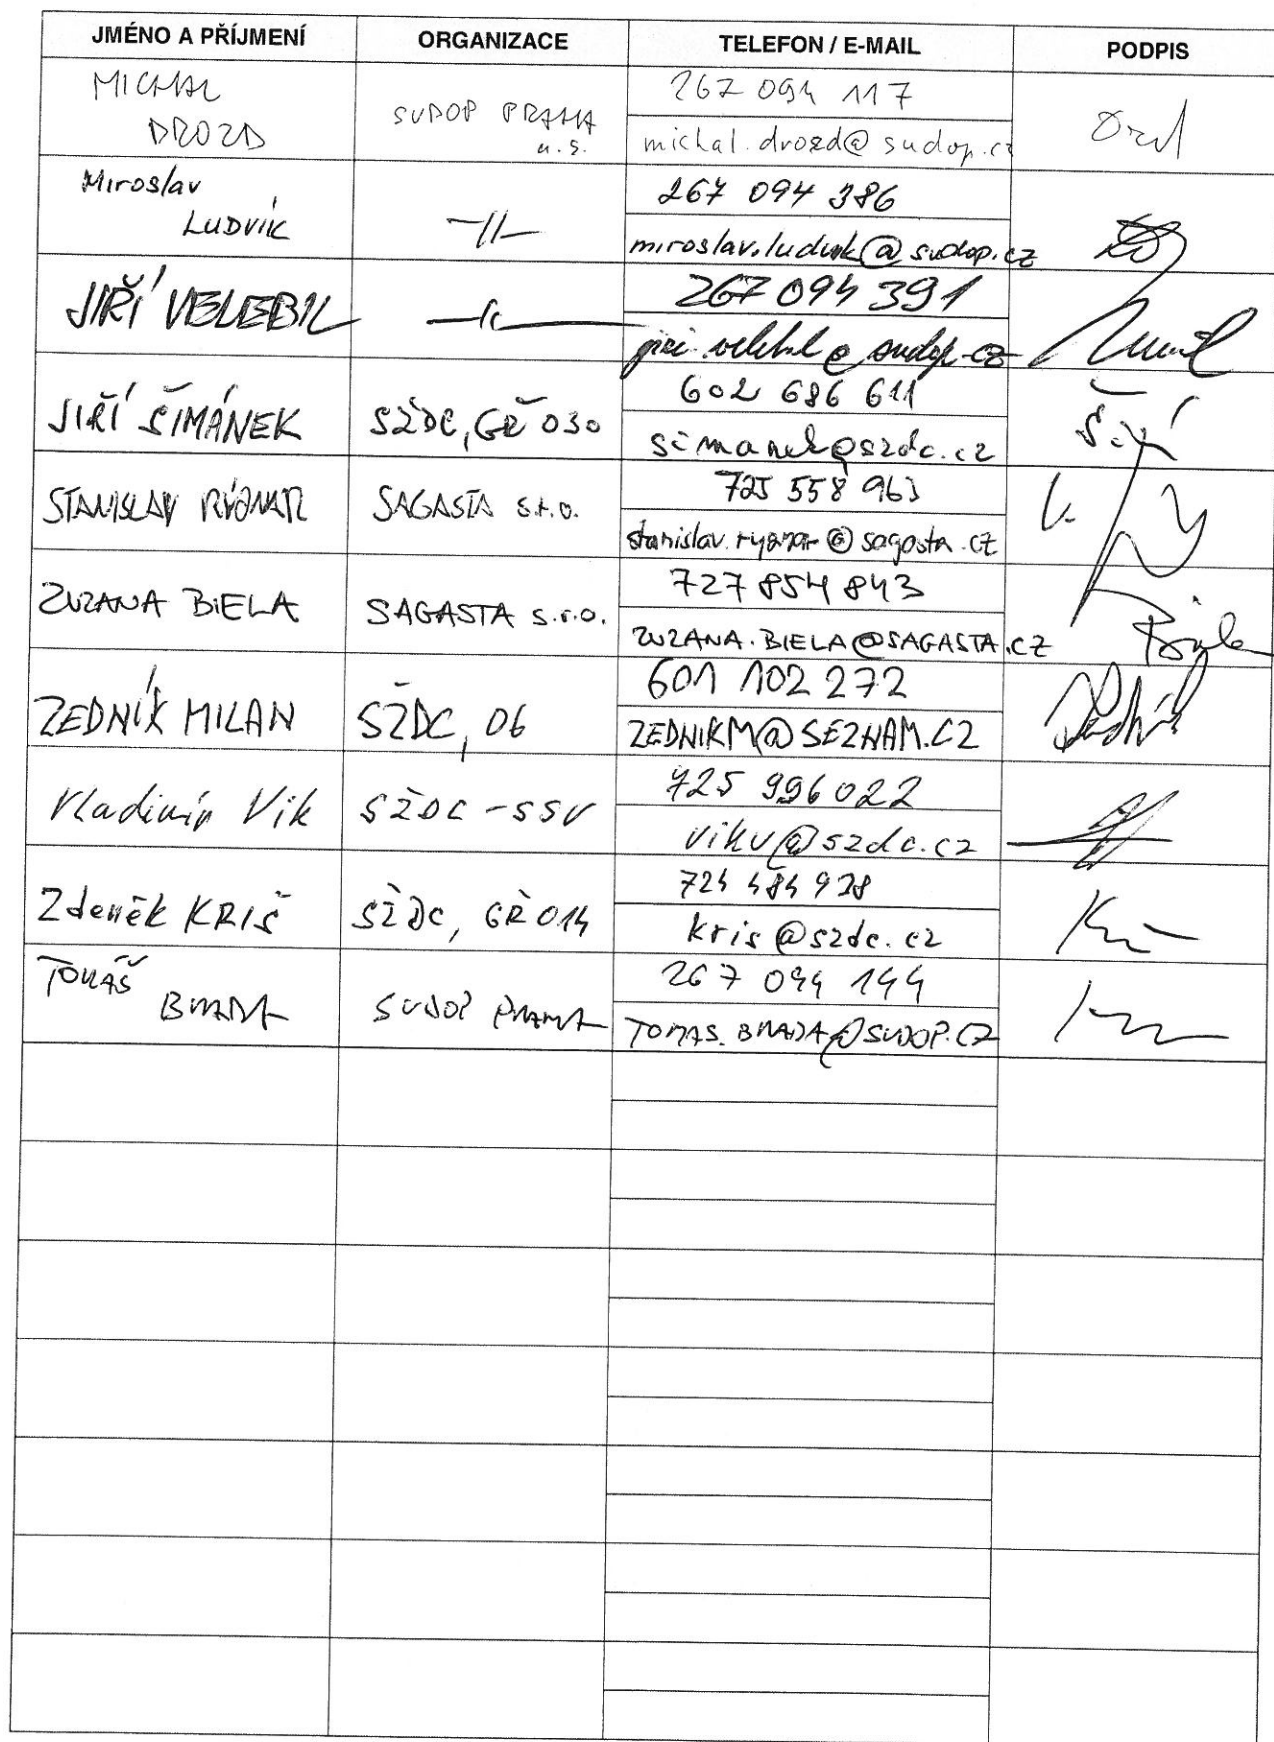 JMÉNO A PŘÍJMENÍ ORGANIZACE TELEFON / E-MAIL PODPIS
MICHAL
DROZD
SUDOP PRAHA
a.s.
267 094 117
michal.drozd@sudop.cz
Miroslav
LUDVÍK
-//-
267 094 386
miroslav.ludvik@sudop.cz
JIŘÍ VELEBIL
-//-
267 094 391
jiri.velebil@sudop.cz
JIŘÍ ŠIMÁNEK
SŽDC, GŘ O30
602 686 611
simanek@szdc.cz
STANISLAV RÝZNAR
SAGASTA s.r.o.
725 558 963
stanislav.ryznar@sagasta.cz
ZUZANA BIELA
SAGASTA s.r.o.
727 854 843
ZUZANA.BIELA@SAGASTA.CZ
ZEDNÍK MILAN
SŽDC, O6
601 102 272
ZEDNIKM@SEZNAM.CZ
Vladimír Vik
SŽDC - SSV
725 996 022
vikv@szdc.cz
Zdeněk KRIŠ
SŽDC, GŘ O14
724 484 928
kris@szdc.cz
TOMÁŠ
BRADA
SUDOP PRAHA
267 094 144
TOMAS.BRADA@SUDOP.CZ